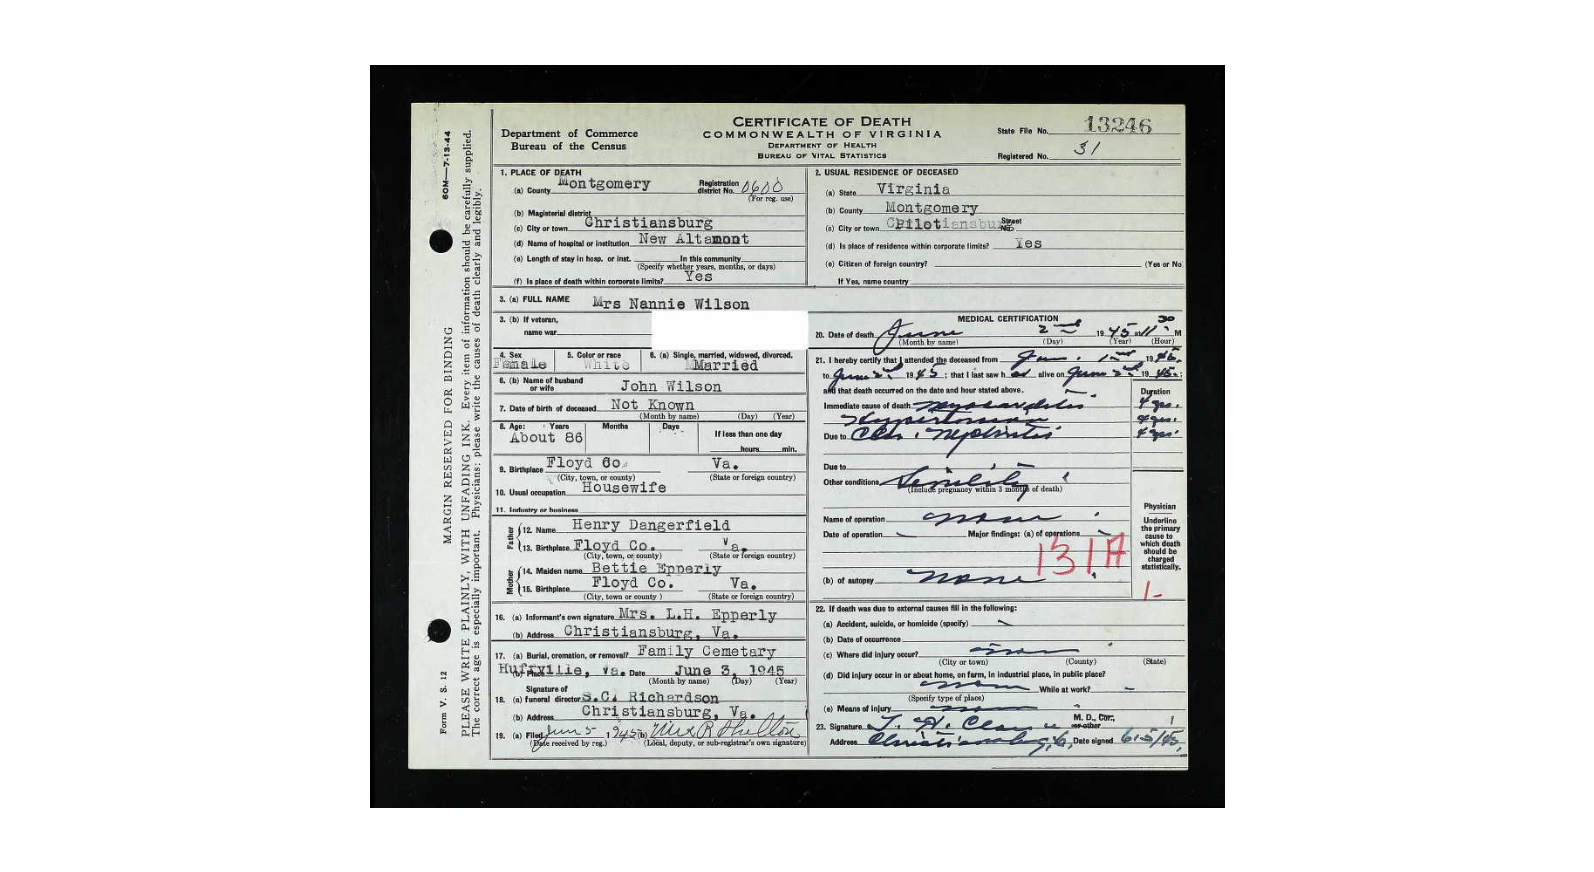 60M—7-13-44
MARGIN RESERVED FOR BINDING
Form V. S. 12
PLEASE WRITE PLAINLY, WITH UNFADING INK. Every item of information should be carefully supplied.
The correct age is especially important. Physicians: please write the causes of death clearly and legibly.
Department of Commerce
Bureau of the Census
CERTIFICATE OF DEATH
COMMONWEALTH OF VIRGINIA
DEPARTMENT OF HEALTH
BUREAU OF VITAL STATISTICS
State File No. 13246
Registered No. 31
1. PLACE OF DEATH
(a) County Montgomery Registration district No. 0600
(For reg. use)
(b) Magisterial district
(c) City or town Christiansburg
(d) Name of hospital or institution New Altamont
(e) Length of stay in hosp. or inst. In this community
(Specify whether years, months, or days)
(f) Is place of death within corporate limits? Yes
2. USUAL RESIDENCE OF DECEASED
(a) State Virginia
(b) County Montgomery
(c) City or town Pilot Street No.
(d) Is place of residence within corporate limits? Yes
(e) Citizen of foreign country? (Yes or No)
If Yes, name country
3. (a) FULL NAME Mrs Nannie Wilson
3. (b) If veteran,
name war
4. Sex 5. Color or race 6. (a) Single, married, widowed, divorced.
Female White Married
6. (b) Name of husband or wife John Wilson
7. Date of birth of deceased Not Known
(Month by name) (Day) (Year)
8. Age: Years Months Days If less than one day
About 86 hours min.
9. Birthplace Floyd Co. Va.
(City, town, or county) (State or foreign country)
10. Usual occupation Housewife
11. Industry or business
Father
12. Name Henry Dangerfield
13. Birthplace Floyd Co. Va.
(City, town, or county) (State or foreign country)
Mother
14. Maiden name Bettie Epperly
15. Birthplace Floyd Co. Va.
(City, town or county) (State or foreign country)
16. (a) Informant's own signature Mrs. L.H. Epperly
(b) Address Christiansburg, Va.
17. (a) Burial, cremation, or removal? Family Cemetary
(b) Place Huffville, Va. Date June 3, 1945
(Month by name) (Day) (Year)
Signature of
18. (a) funeral director S.C. Richardson
(b) Address Christiansburg, Va.
19. (a) Filed June 5, 1945 (b)
(Date received by reg.) (Local, deputy, or sub-registrar's own signature)
MEDICAL CERTIFICATION
20. Date of death June 2nd 1945 at 11 30 M
(Month by name) (Day) (Year) (Hour)
21. I hereby certify that I attended the deceased from 1945
to June 2nd 1945; that I last saw h alive on June 2nd 1945;
and that death occurred on the date and hour stated above. Duration
Immediate cause of death Myocarditis 4 yrs.
Hypertension 4 yrs.
Due to Chr. Nephritis 4 yrs.
Due to
Other conditions Senility
(Include pregnancy within 3 months of death)
Name of operation none
Date of operation Major findings: (a) of operations
131A
(b) of autopsy none
Physician
Underline the primary cause to which death should be charged statistically.
1-
22. If death was due to external causes fill in the following:
(a) Accident, suicide, or homicide (specify)
(b) Date of occurrence
(c) Where did injury occur?
(City or town) (County) (State)
(d) Did injury occur in or about home, on farm, in industrial place, in public place?
While at work?
(Specify type of place)
(e) Means of injury
23. Signature M. D., Cor., or other
Address Christiansburg, Va. Date signed 6/5/45